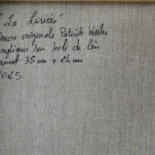 "La Lisière"
Œuvre originale Patricia
Acrylique sur toile de lin
Format 35 cm x 24 cm
2025